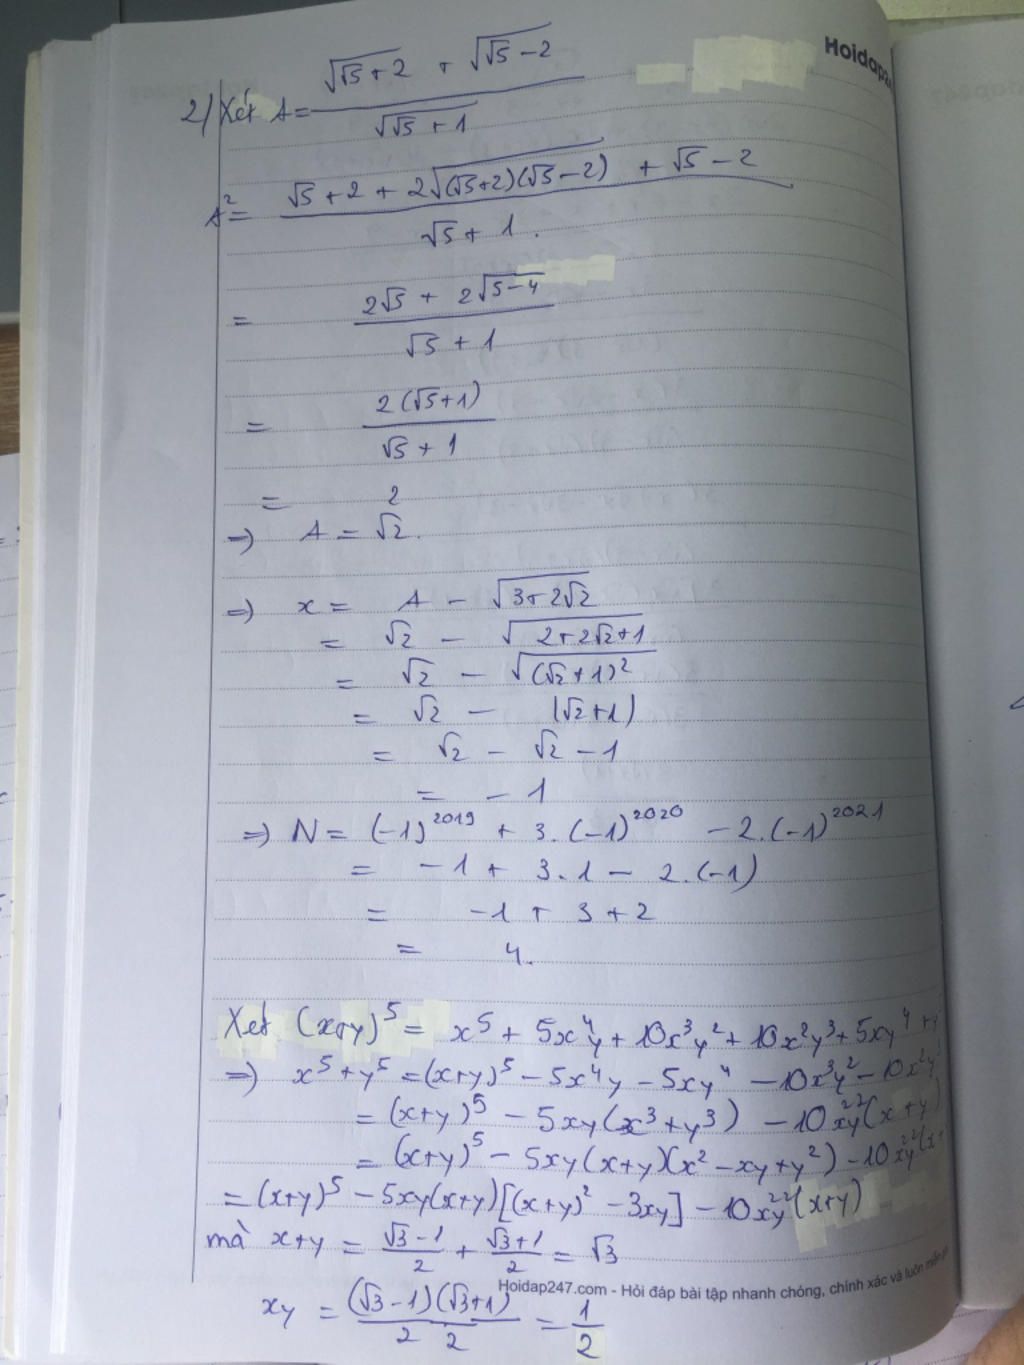 Hoidap2
2) Xét A = \frac{\sqrt{\sqrt{5}+2} + \sqrt{\sqrt{5}-2}}{\sqrt{\sqrt{5}+1}}
A² = \frac{\sqrt{5}+2+2\sqrt{(\sqrt{5}+2)(\sqrt{5}-2)} + \sqrt{5}-2}{\sqrt{5}+1}.
= \frac{2\sqrt{5} + 2\sqrt{5-4}}{\sqrt{5}+1}
= \frac{2(\sqrt{5}+1)}{\sqrt{5}+1}
= 2
=) A = √2.
=) x = A - \sqrt{3+2\sqrt{2}}
= √2 - \sqrt{2+2\sqrt{2}+1}
= √2 - \sqrt{(\sqrt{2}+1)^2}
= √2 - |√2+1|
= √2 - √2 - 1
= -1
=) N = (-1)^{2019} + 3.(-1)^{2020} - 2.(-1)^{2021}
= -1 + 3.1 - 2.(-1)
= -1 + 3 + 2
= 4.
Xét (x+y)⁵ = x⁵ + 5x⁴y + 10x³y² + 10x²y³ + 5xy⁴ + y
=) x⁵ + y⁵ = (x+y)⁵ - 5x⁴y - 5xy⁴ - 10x³y² - 10x²y³
= (x+y)⁵ - 5xy(x³+y³) - 10x²y²(x+y)
= (x+y)⁵ - 5xy(x+y)(x² - xy + y²) - 10x²y²(x+
= (x+y)⁵ - 5xy(x+y)[(x+y)² - 3xy] - 10x²y²(x+y)
mà x+y = \frac{\sqrt{3}-1}{2} + \frac{\sqrt{3}+1}{2} = √3
Hoidap247.com - Hỏi đáp bài tập nhanh chóng, chính xác và luôn miễn
xy = \frac{(\sqrt{3}-1)(\sqrt{3}+1)}{2 \cdot 2} = \frac{1}{2}